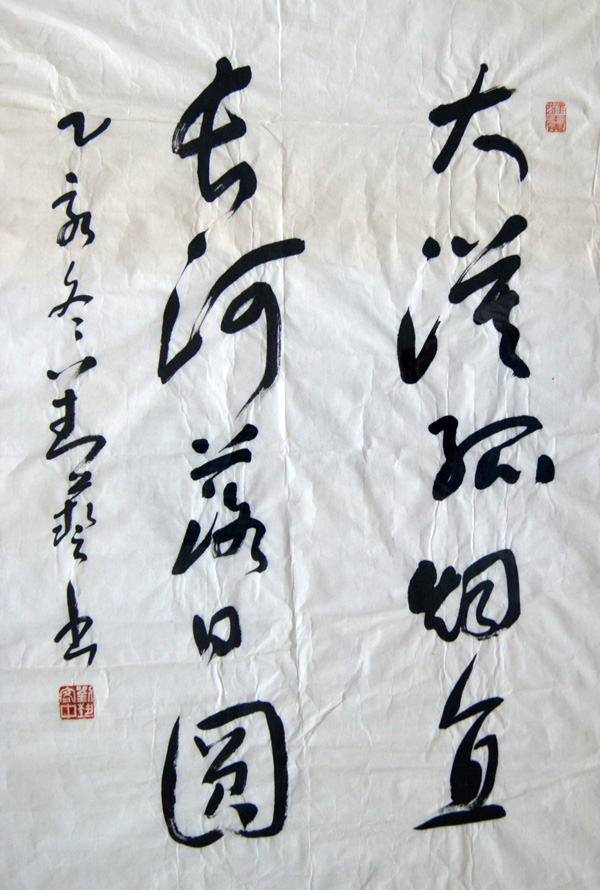 大漠孤烟直
长河落日圆
乙亥冬刘藝书